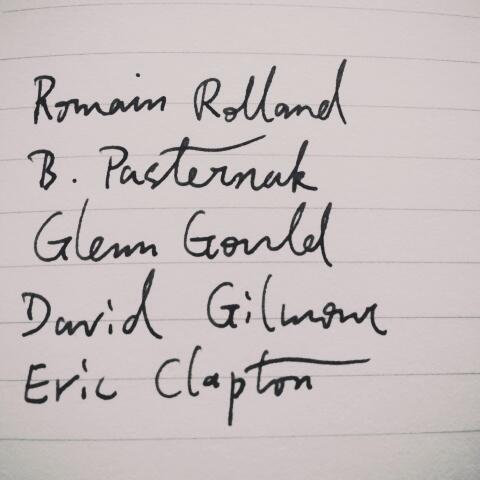 Romain Rolland
B. Pasternak
Glenn Gould
David Gilmour
Eric Clapton